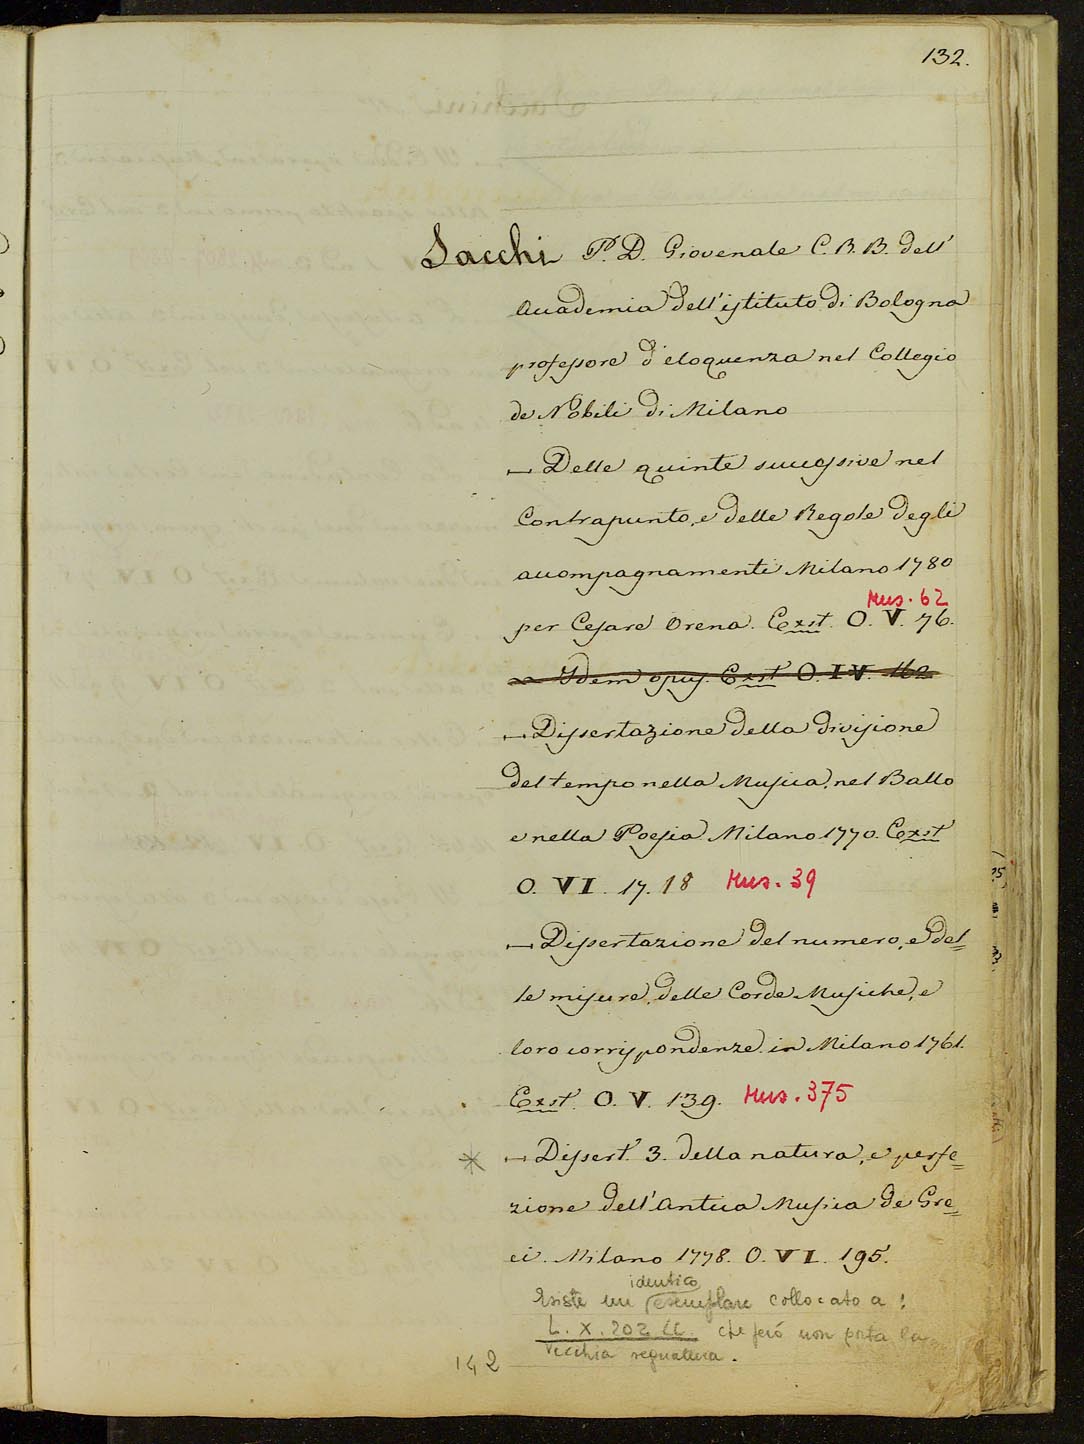 132.
Sacchi P. D. Giovenale C. R. B. dell'
Accademia dell'istituto di Bologna
professore d'eloquenza nel Collegio
de Nobili di Milano
— Delle quinte successive nel
Contrapunto, e delle Regole degli
accompagnamenti Milano 1780
Mus. 62
per Cesare Orena. Exst. O. V. 76.
— Idem opus. Exst O. IV. 162
— Dissertazione della divisione
del tempo nella Musica, nel Ballo
e nella Poesia Milano 1770. Exst
O. VI. 17. 18 Mus. 39
— Dissertazione del numero, e del=
le misure, delle Corde Musiche, e
loro corrispondenze in Milano 1761.
Exst. O. V. 139. Mus. 375
* — Dissert. 3. della natura, e perfe=
zione dell'Antica Musica de Gre=
ci. Milano 1778. O. VI. 195.
identico
Esiste un esemplare collocato a :
L. X. 202 che però non porta la
vecchia segnatura.
142